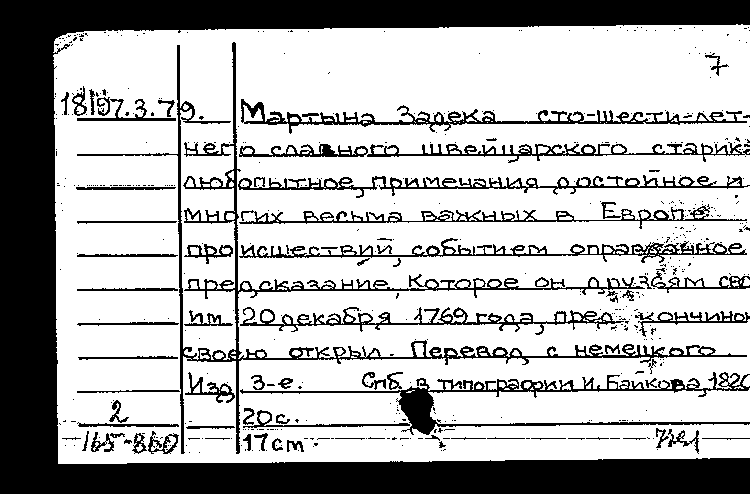 7
18197.3.79. Мартына Задека сто-шести-лет-
него славного швейцарского старика
любопытное, примечания достойное и
многих весьма важных в Европе
происшествий, событием оправданное
предсказание, которое он друзьям сво
им 20 декабря 1769 года, пред кончиною
своею открыл. Перевод с немецкого
Изд 3-е. Спб, в типографии И. Байкова, 1820
2 20с.
165-860 17см.